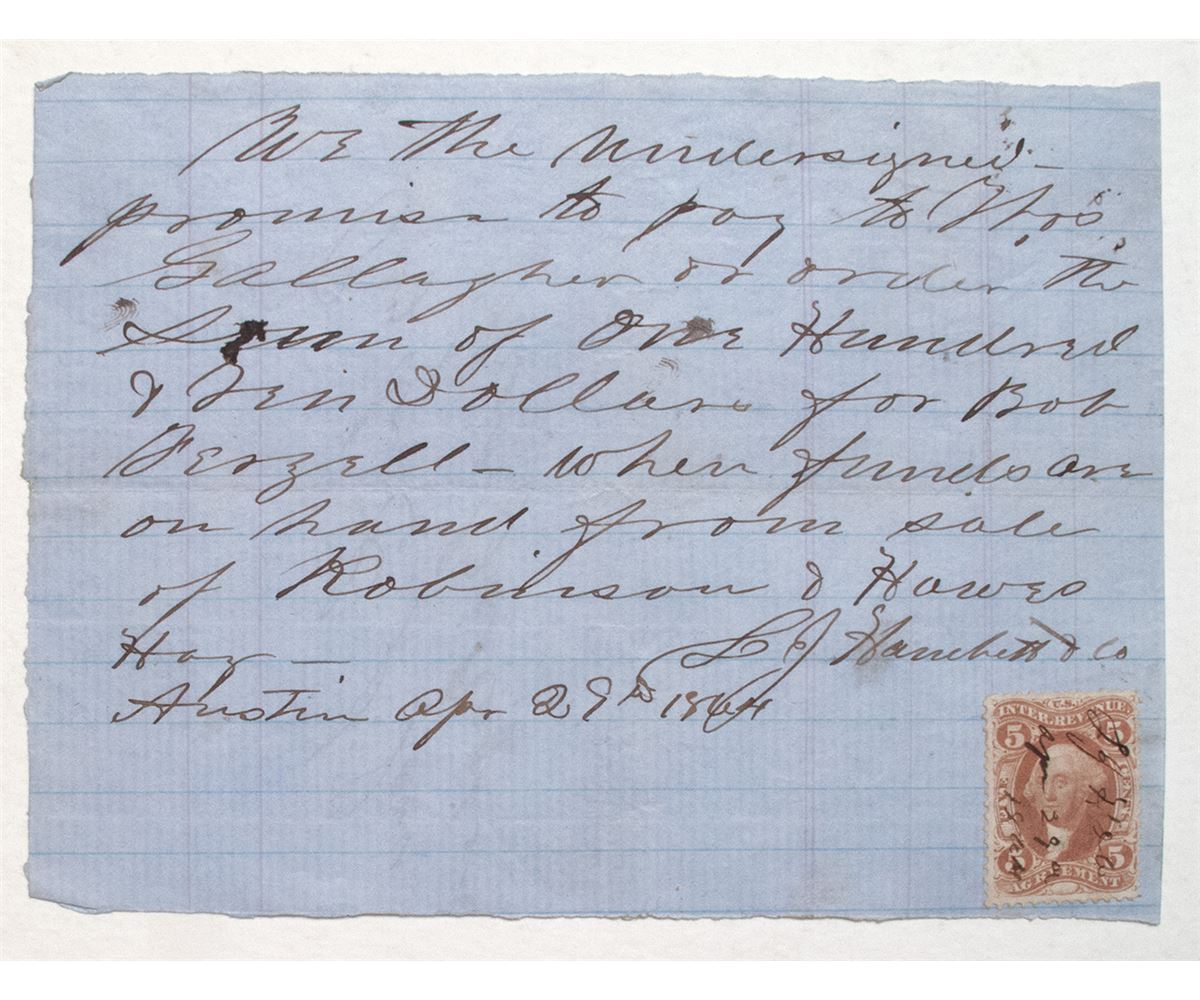 We the Undersigned
promise to pay to Thos
Gallagher or order the
Sum of One Hundred
& Ten Dollars for Bob
Terzell – when funds are
on hand from sale
of Robinson & Hawes
Hay –
L J Hanchett & Co
Austin Apr 29th 1864
U.S.
INTER. REVENUE
5 5
FIVE CENTS
5 5
AGREEMENT